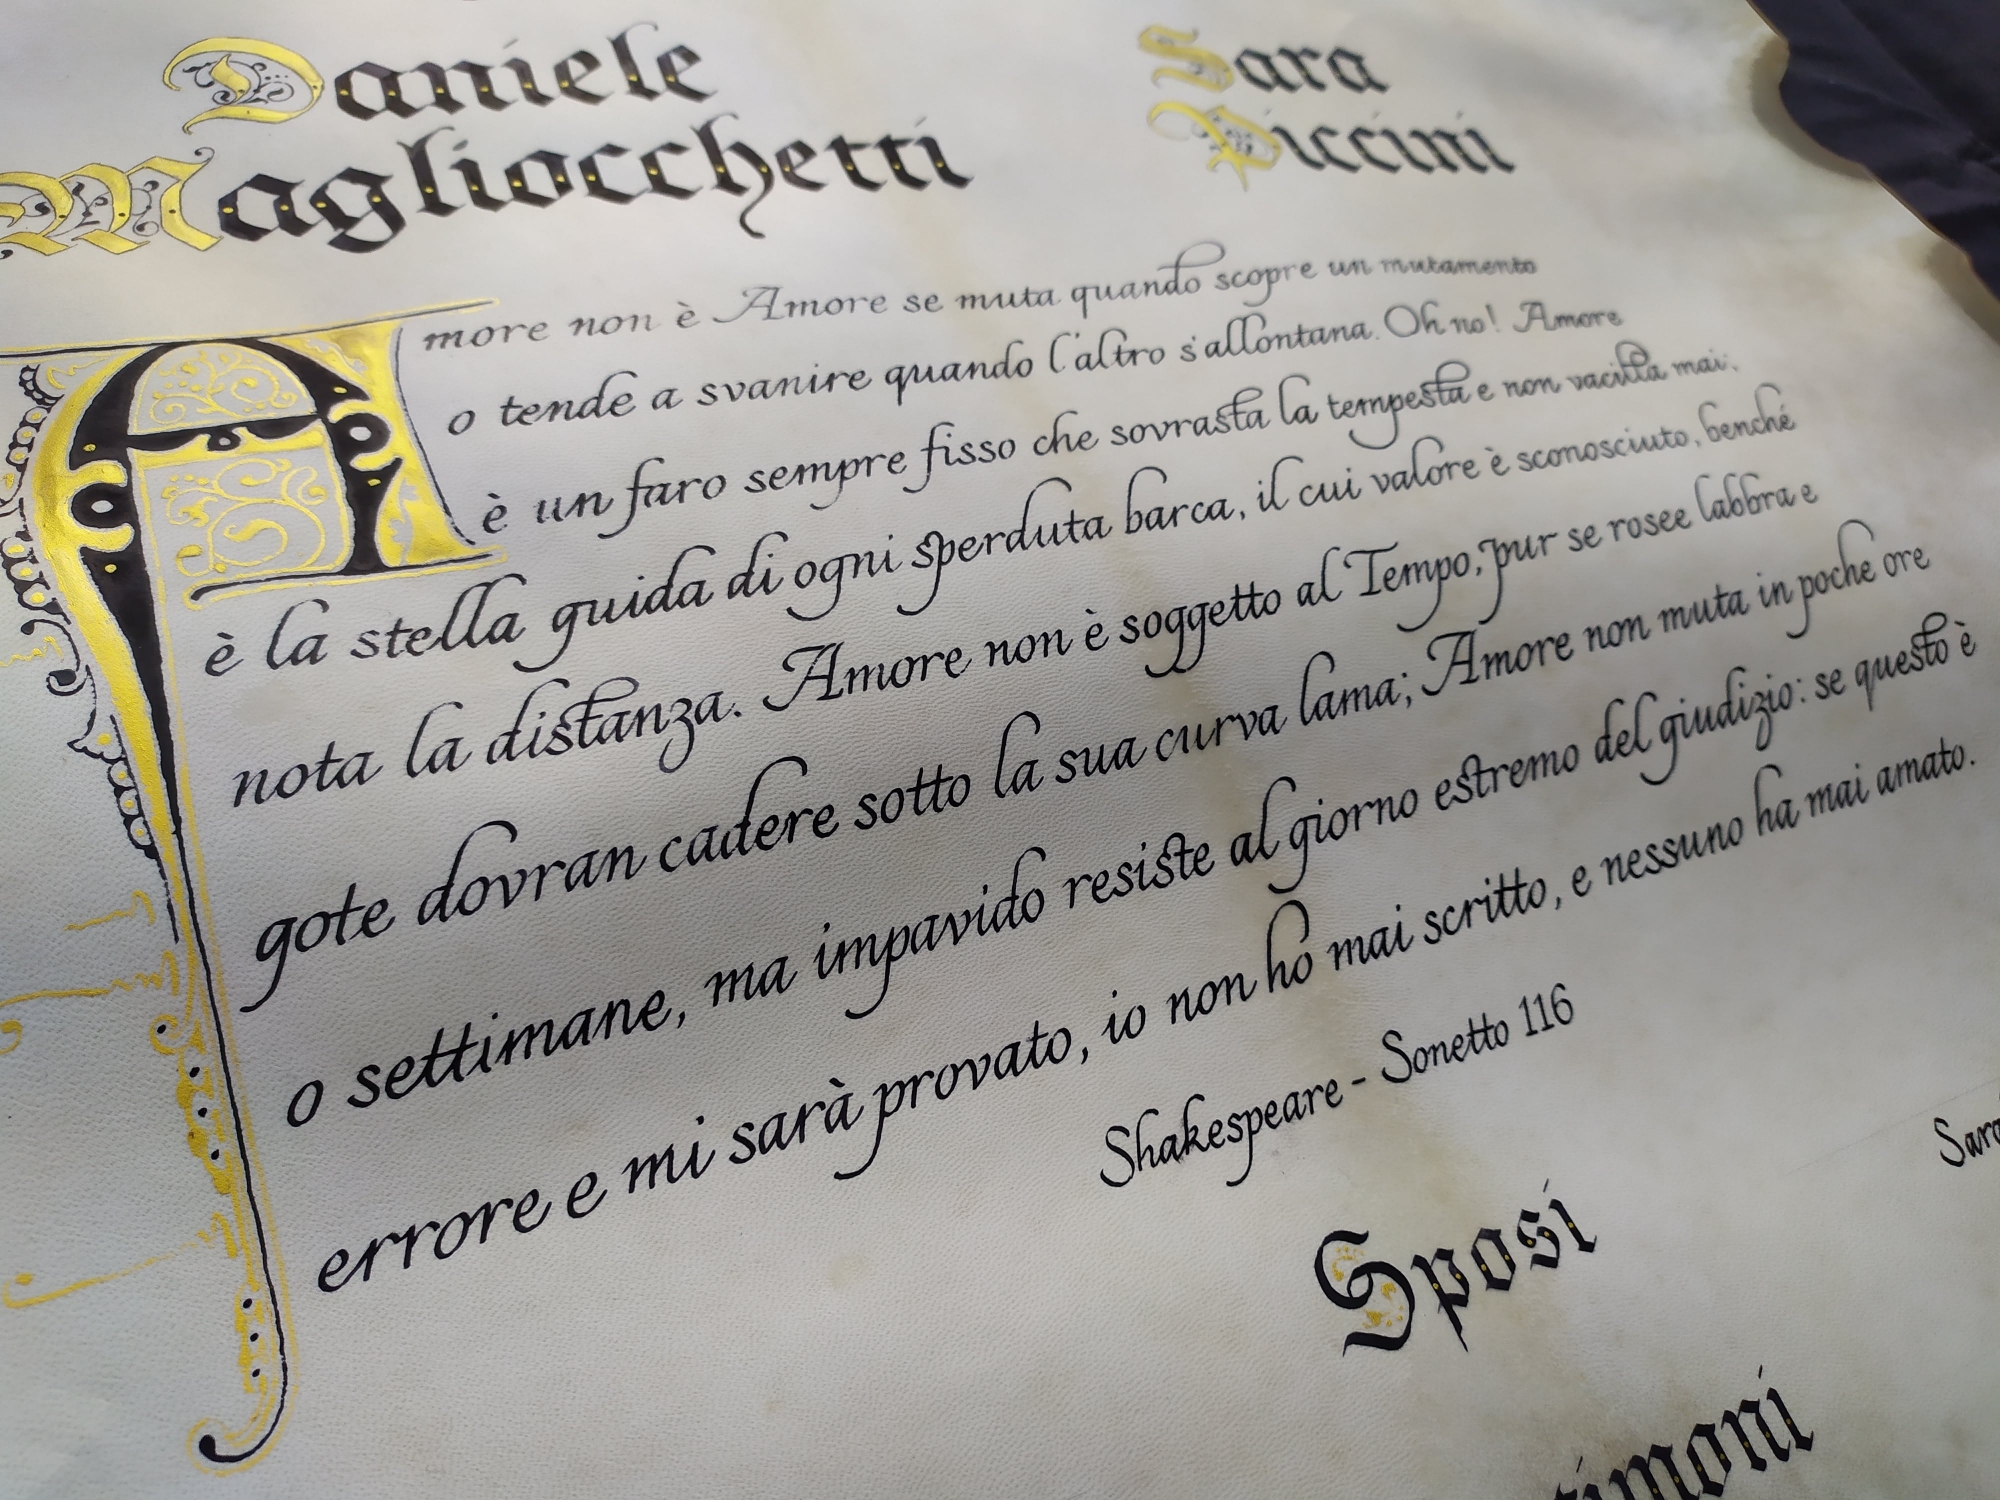 Daniele
Magliocchetti
Sara
Piccini
Amore non è Amore se muta quando scopre un mutamento
o tende a svanire quando l'altro s'allontana. Oh no! Amore
è un faro sempre fisso che sovrasta la tempesta e non vacilla mai;
è la stella guida di ogni sperduta barca, il cui valore è sconosciuto, benché
nota la distanza. Amore non è soggetto al Tempo, pur se rosee labbra e
gote dovran cadere sotto la sua curva lama; Amore non muta in poche ore
o settimane, ma impavido resiste al giorno estremo del giudizio: se questo è
errore e mi sarà provato, io non ho mai scritto, e nessuno ha mai amato.
Shakespeare - Sonetto 116
Sara
Sposi
timoni